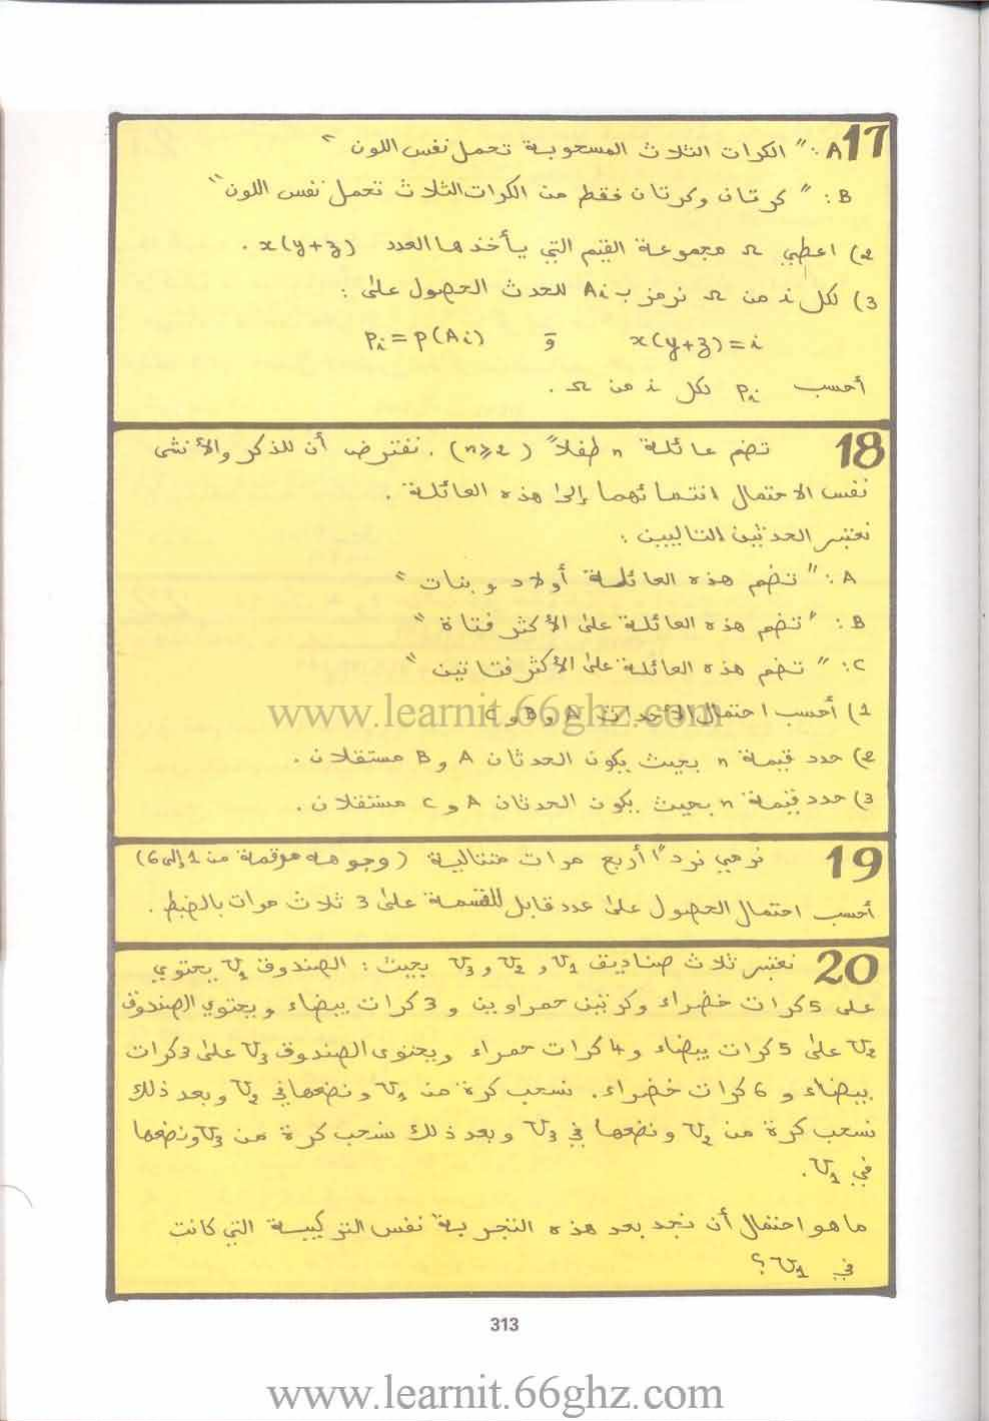 17
A: " الكرات الثلاث المسحوبة تحمل نفس اللون "
B: " كرتان وكرتان فقط من الكرات الثلاث تحمل نفس اللون "
2) اعطي Ω مجموعة القيم التي يأخذها العدد x(y+z) .
3) لكل i من Ω نرمز بـ Ai للحدث الحصول على :
x(y+z)=i و pi=p(Ai)
أحسب pi لكل i من Ω .
18 تضم عائلة n طفلاً (n⩾2) . نفترض أن للذكر والأنثى
نفس الاحتمال انتمائهما إلى هذه العائلة .
نعتبر الحدثين التاليين :
A: " تضم هذه العائلة أولاد و بنات "
B: " تضم هذه العائلة على الأكثر فتاة "
C: " تضم هذه العائلة على الأكثر فتاتين "
1) أحسب احتمال الأحداث A و B و C
www.learnit.66ghz.com
2) حدد قيمة n بحيث يكون الحدثان A و B مستقلان .
3) حدد قيمة n بحيث يكون الحدثان A و C مستقلان .
19 نرمي نرداً أربع مرات متتالية (وجوهه مرقمة من 1 إلى 6)
أحسب احتمال الحصول على عدد قابل للقسمة على 3 ثلاث مرات بالضبط .
20 نعتبر ثلاث صناديق U1 و U2 و U3 بحيث : الصندوق U1 يحتوي
على 5 كرات خضراء وكرتين حمراوين و 3 كرات بيضاء و يحتوي الصندوق
U2 على 5 كرات بيضاء و 4 كرات حمراء ويحتوى الصندوق U3 على 3 كرات
بيضاء و 6 كرات خضراء . نسحب كرة من U1 و نضعها في U2 وبعد ذلك
نسحب كرة من U2 و نضعها في U3 و بعد ذلك نسحب كرة من U3 ونضعها
في U1 .
ما هو احتمال أن نجد بعد هذه التجربة نفس التركيبة التي كانت
في U1 ؟
313
www.learnit.66ghz.com